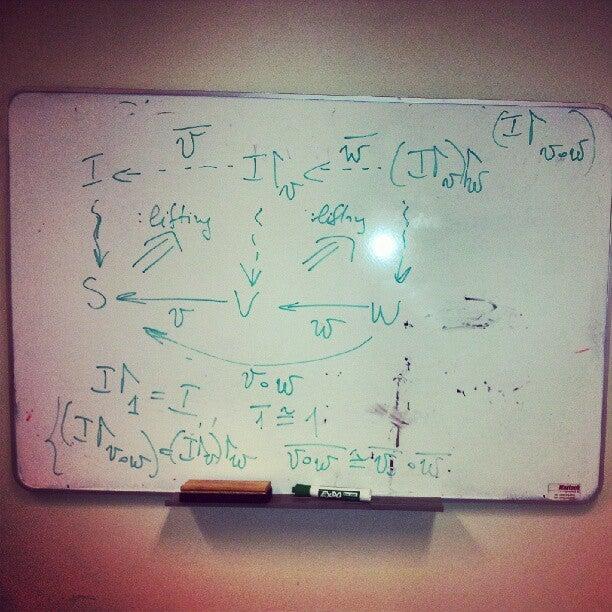 (I↾v∘w)
I ⇠ v̄ I↾v ⇠ w̄ (I↾v)↾w
:lifting :lifting
S ← v V ← w W
v∘w
I↾1 = I 1̄ ≅ 1
(I↾v∘w) = (I↾v)↾w v∘w ≅ v̄ ∘ w̄
EXPO